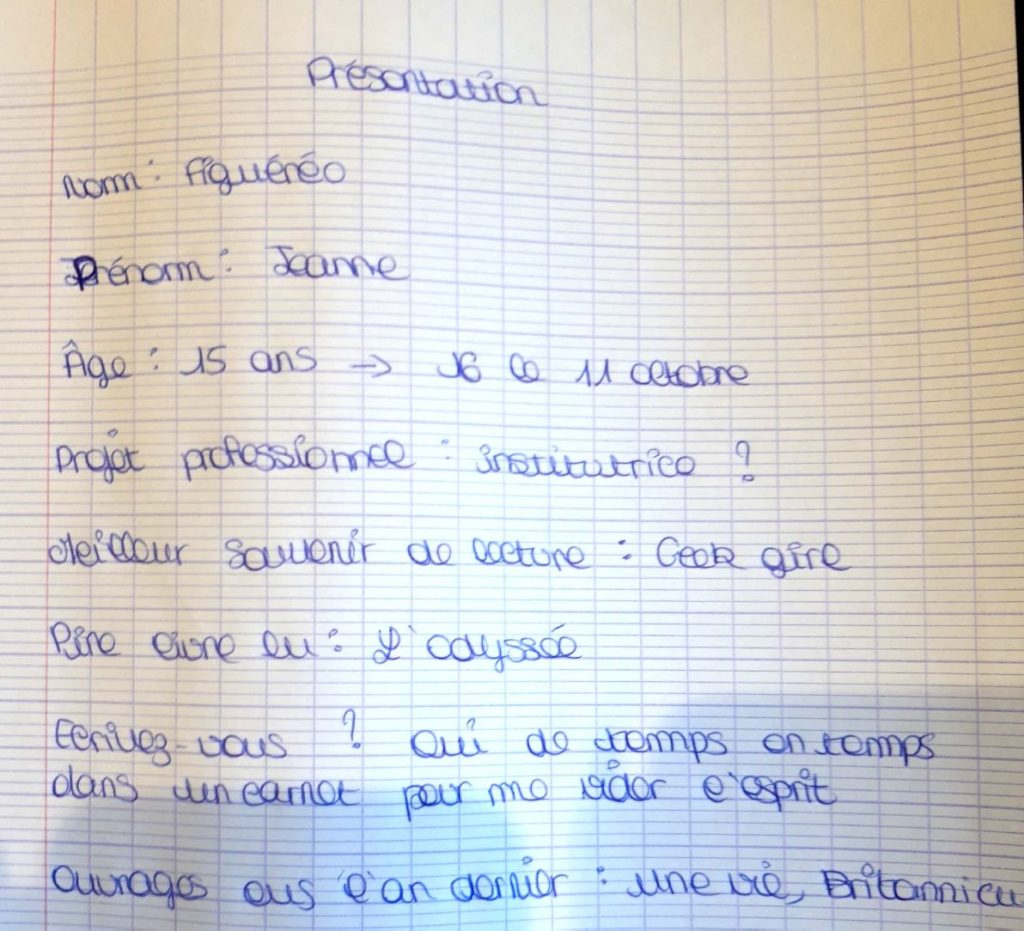 Présentation
Nom : Figuéréo
Prénom : Jeanne
Âge : 15 ans → 16 le 11 octobre
Projet professionnel : institutrice ?
Meilleur souvenir de lecture : Geek girl
Pire livre lu : L'odyssée
Ecrivez-vous ? Oui de temps en temps
dans un carnet pour me vider l'esprit
Ouvrages lus l'an dernier : une vie, Britannicu